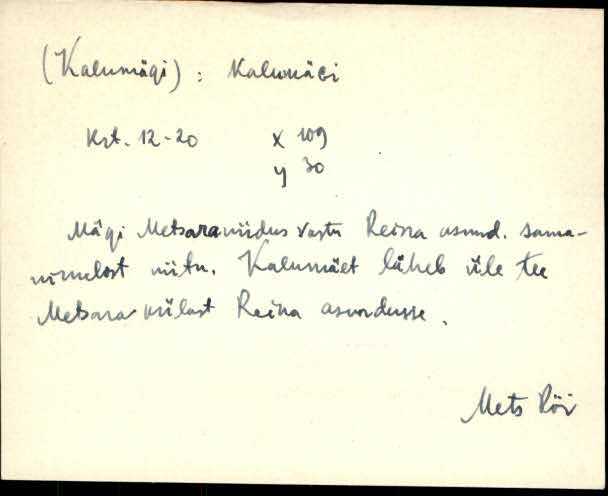 (Kalumägi) : Kalumäɢi
Krt. 12-20 X 109
y 30
Mägi Metsaraniidus vastu Reina asund. sama-
nimelist niitu. Kalumäet läheb üle tee
Metsara külast Reina asundusse.
Mets Röi